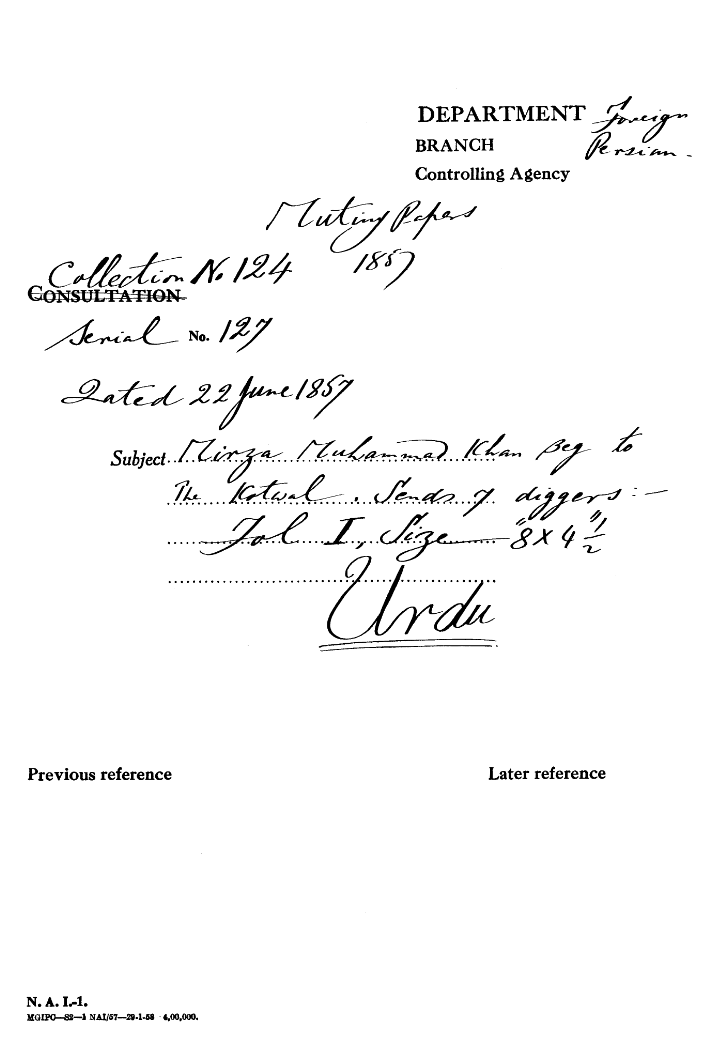 DEPARTMENT Foreign
BRANCH Persian.
Controlling Agency
Mutiny Papers
1857
Collection No 124
CONSULTATION
Serial No. 127
Dated 22 June 1857
Subject Mirza Muhammad Khan Beg to
The Kotwal. Sends 7 diggers:-
Fol I, Size 8" X 4 1/2"
Urdu
Previous reference Later reference
N. A. I.-1.
MGIPC—S2—1 NAI/57—29-1-58 4,00,000.